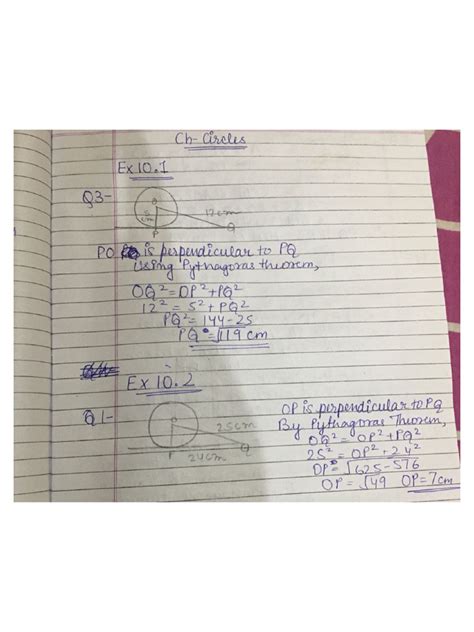 Ch- Circles
Ex 10.1
Q3-
O
5 cm
12 cm
P
Q
PO is perpendicular to PQ
Using Pythagoras theorem,
OQ² = OP² + PQ²
12² = 5² + PQ²
PQ² = 144 - 25
PQ = √119 cm
Ex 10.2
Q1-
O
25cm
P
24cm
Q
OP is perpendicular to PQ
By Pythagoras Theorem,
OQ² = OP² + PQ²
25² = OP² + 24²
OP = √625-576
OP = √49 OP = 7cm